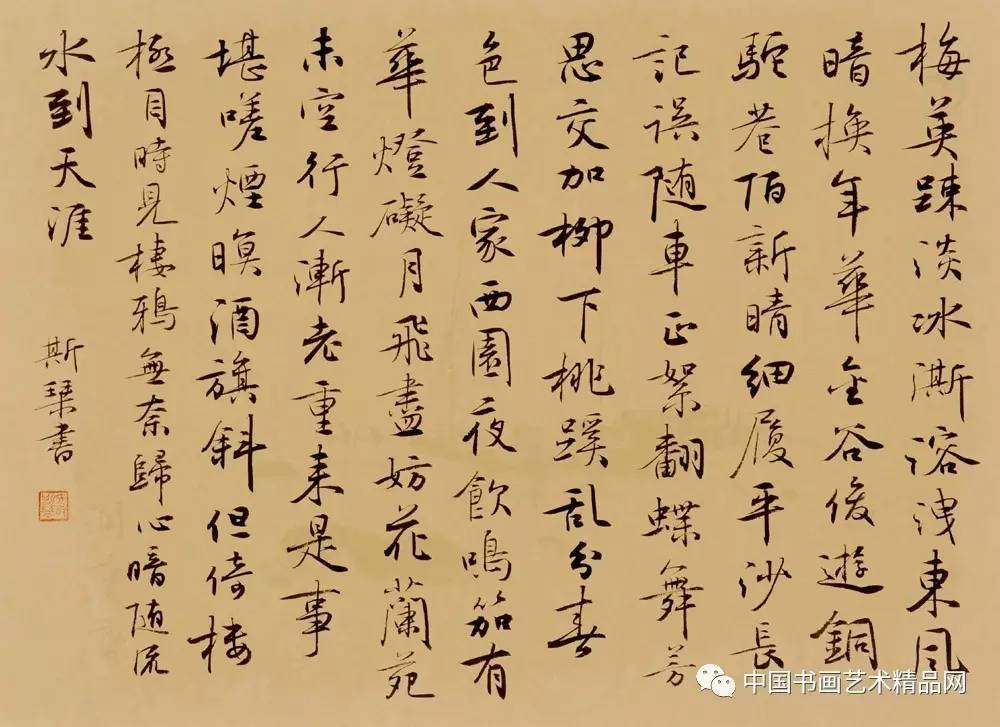 梅英踈淡冰澌溶洩東風
暗換年華金谷俊遊銅
駝巷陌新晴細履平沙長
記誤随車正絮翻蝶舞芳
思交加柳下桃蹊乱分春
色到人家西園夜飲鳴笳有
華燈礙月飛蓋妨花蘭苑
未空行人漸老重来是事
堪嗟煙暝酒旗斜但倚楼
極目時見棲鴉無奈歸心暗随流
水到天涯
斯琹書
中国书画艺术精品网